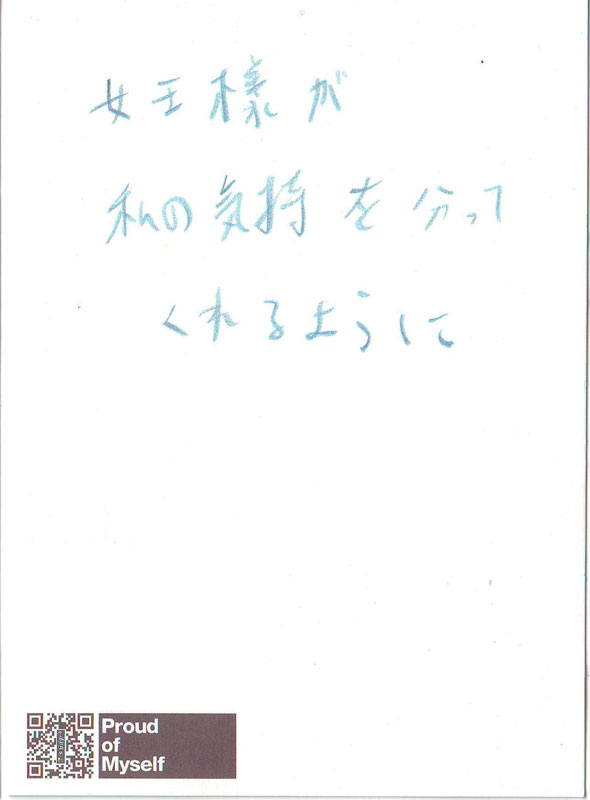 女王様が
私の気持を分って
くれるように
Proud
of
Myself